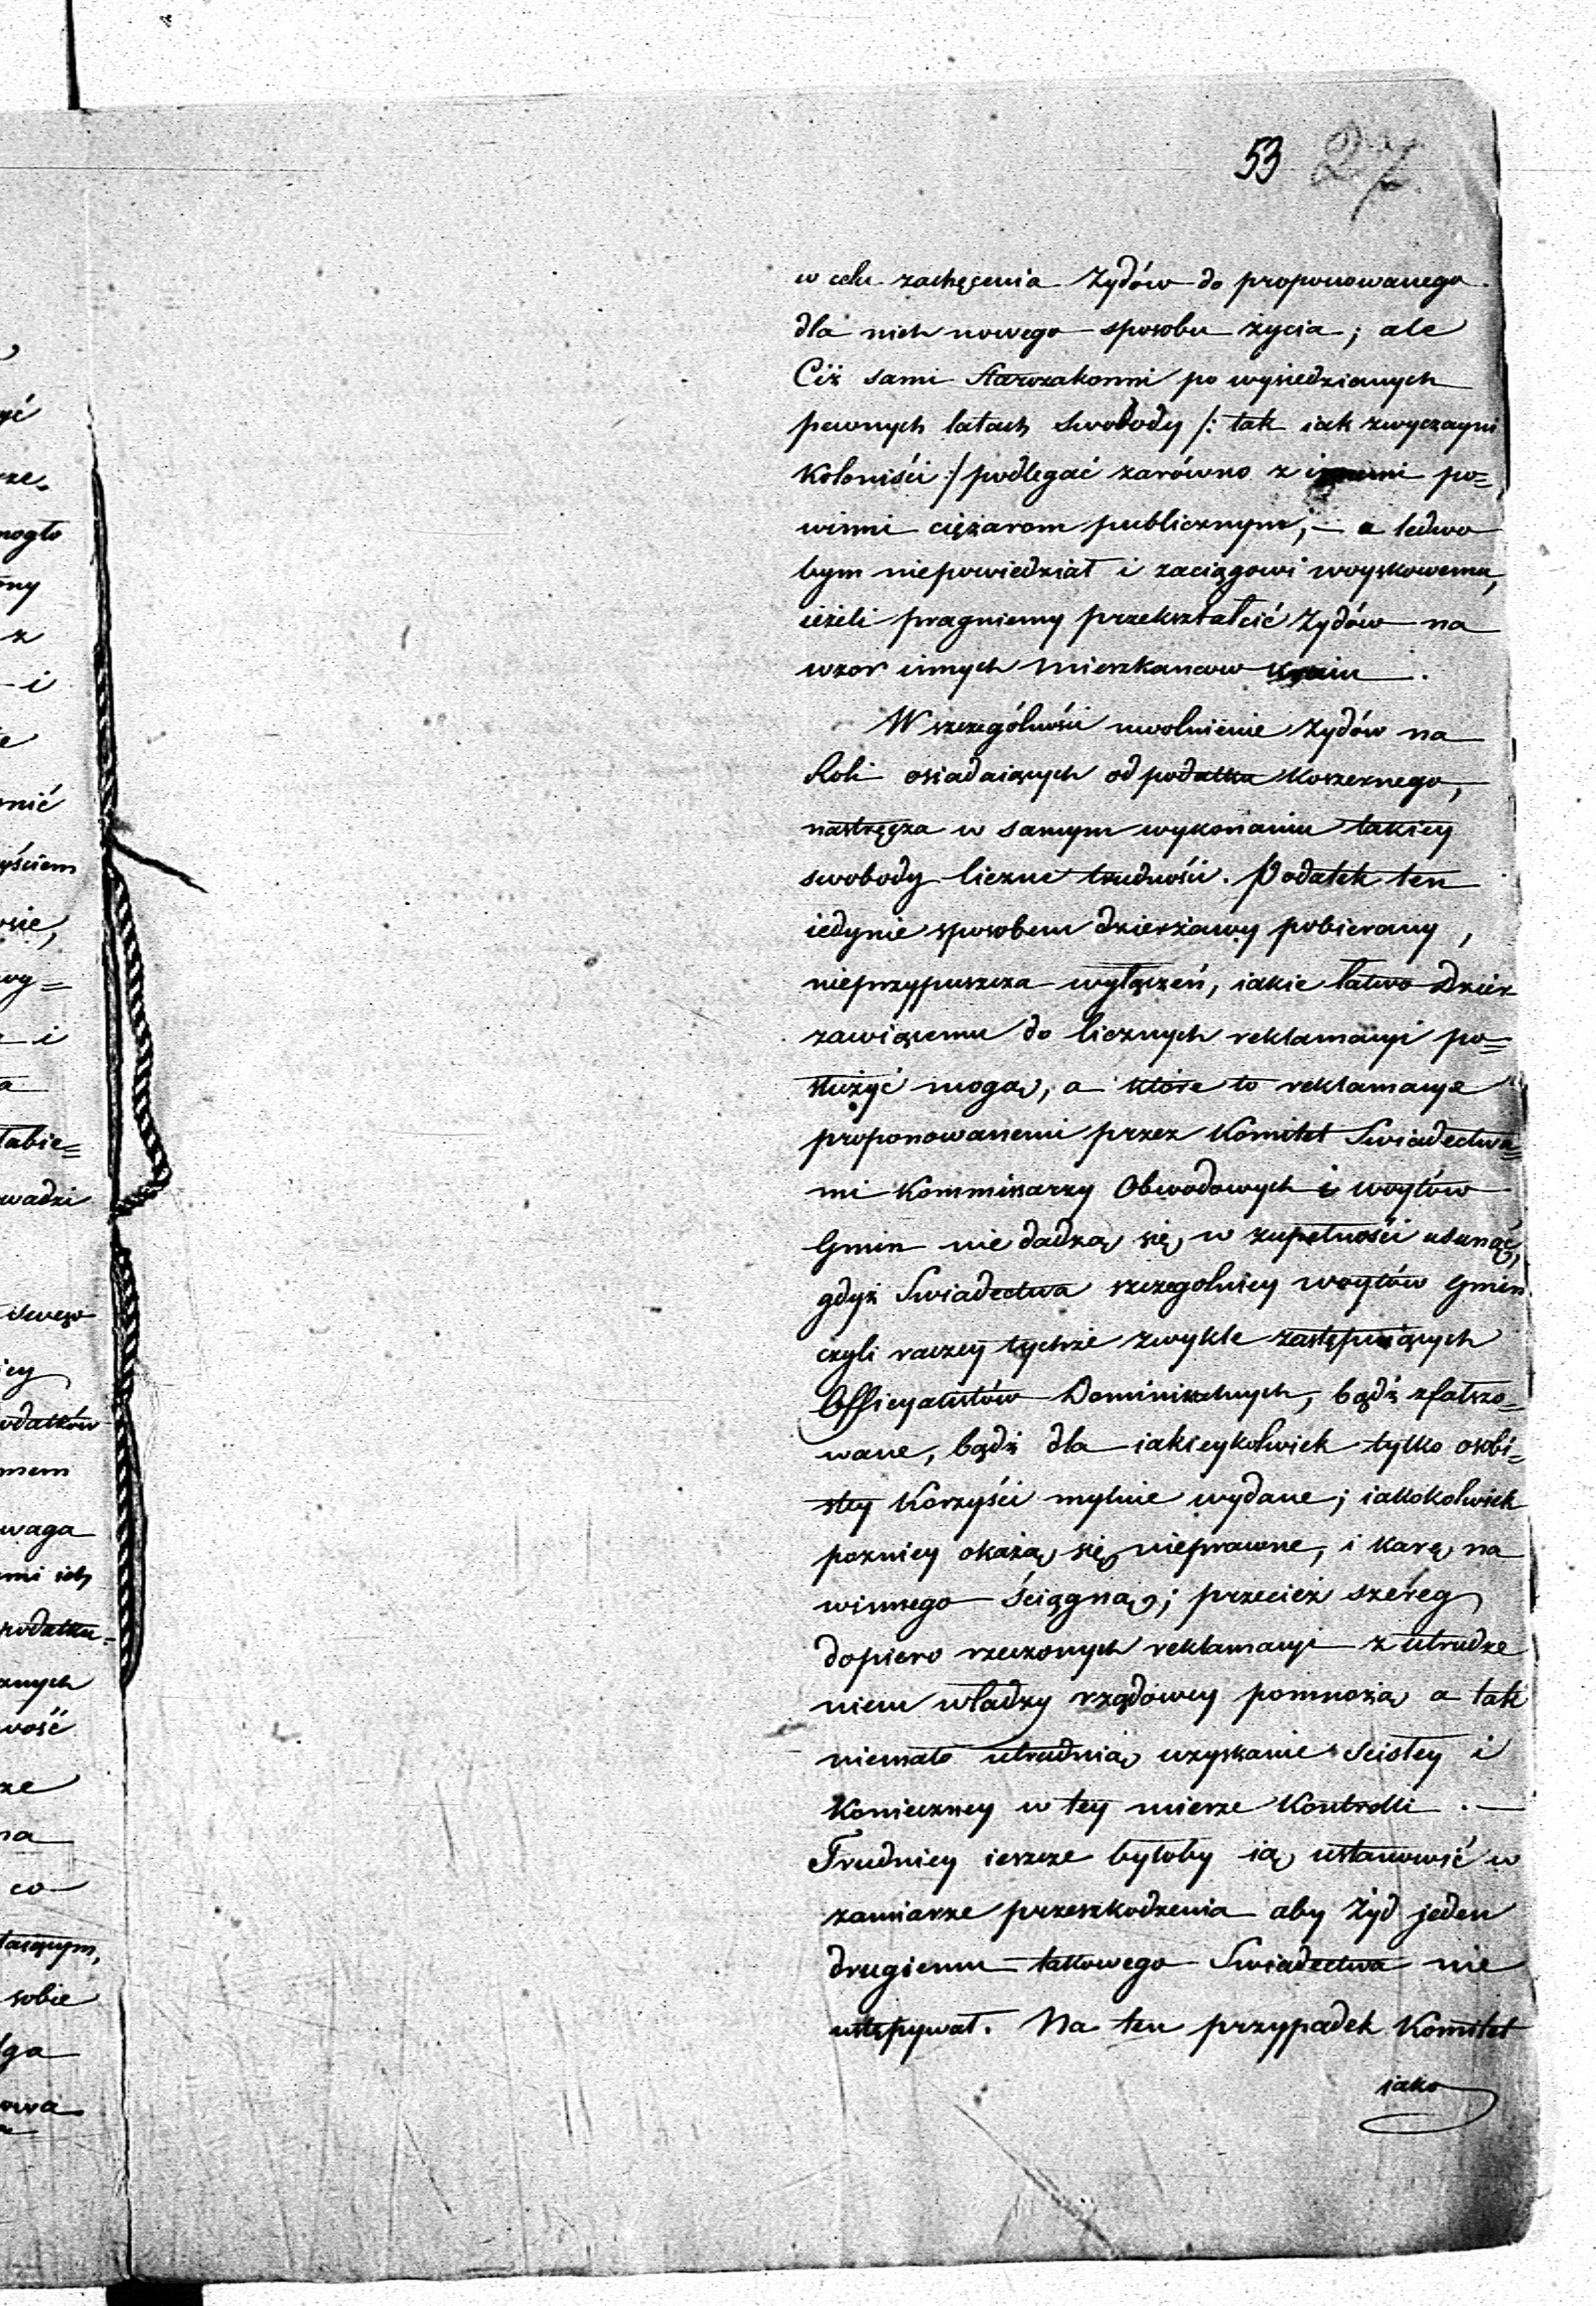 53 27.
w celu zachęcenia Żydów do proponowanego
dla nich nowego sposobu życia; ale
Ciż sami Starozakonni po wysiedzianych
pewnych latach swobody /: tak iak zwyczayni
Koloniści :/ podlegać zarówno z innemi po=
winni ciężarom publicznym, — a ledwo
bym niepowiedział i zaciągowi woyskowemu,
ieżeli pragniemy przekształcić Żydów na
wzor innych Mieszkancow Kraiu.
W szczególności uwolnienie Żydów na
Roli osiadaiących od podatku Koszernego,
nastręcza w samym wykonaniu takiey
swobody liczne trudności. Podatek ten
iedynie sposobem dzierżawy pobierany,
nieprzypuszcza wyłączeń, iakie łatwo Dzier
żawiącemu do licznych reklamacyi po=
służyć mogą, a które to reklamacye
proponowanemi przez Komitet Swiadectwa=
mi Kommissarzy Obwodowych i woytów
Gmin nie dadzą się w zupełności usunąć,
gdyż Swiadectwa szczegolniey woytów Gmin
czyli raczey tychże zwykle zastępuiących
Officyalistów Dominikalnych, bądź sfałszo=
wane, bądź dla iakieykolwiek tylko osobi=
stey Korzyści mylnie wydane; iakokolwiek
pozniey okażą się nieprawne, i karę na
winnego ściągną; przecież szereg
dopiero rzeczonych reklamacyi z utrudze
niem władzy rządowey pomnożą a tak
niemało utrudnią uzyskanie scisłey i
Konieczney w tey mierze Kontrolli. —
Trudniey ieszcze byłoby ią ustanowić w
zamiarze przeszkodzenia aby Żyd jeden
drugiemu takowego Swiadectwa nie
ustępywał. Na ten przypadek Komitet
iako